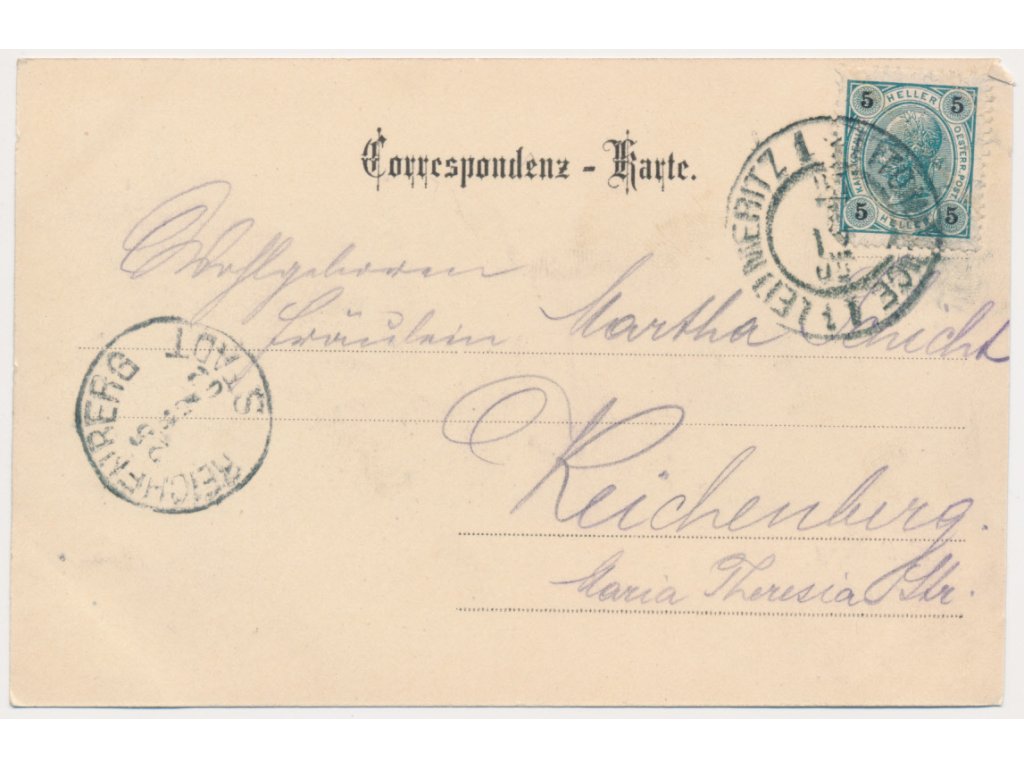 Correspondenz - Karte.
5 HELLER 5
OESTERR. POST
5 HELLER 5
LEITMERITZ 1
Wohlgeboren
Fräulein Martha Schicht
Reichenberg.
Maria Theresia Str.
REICHENBERG
STADT